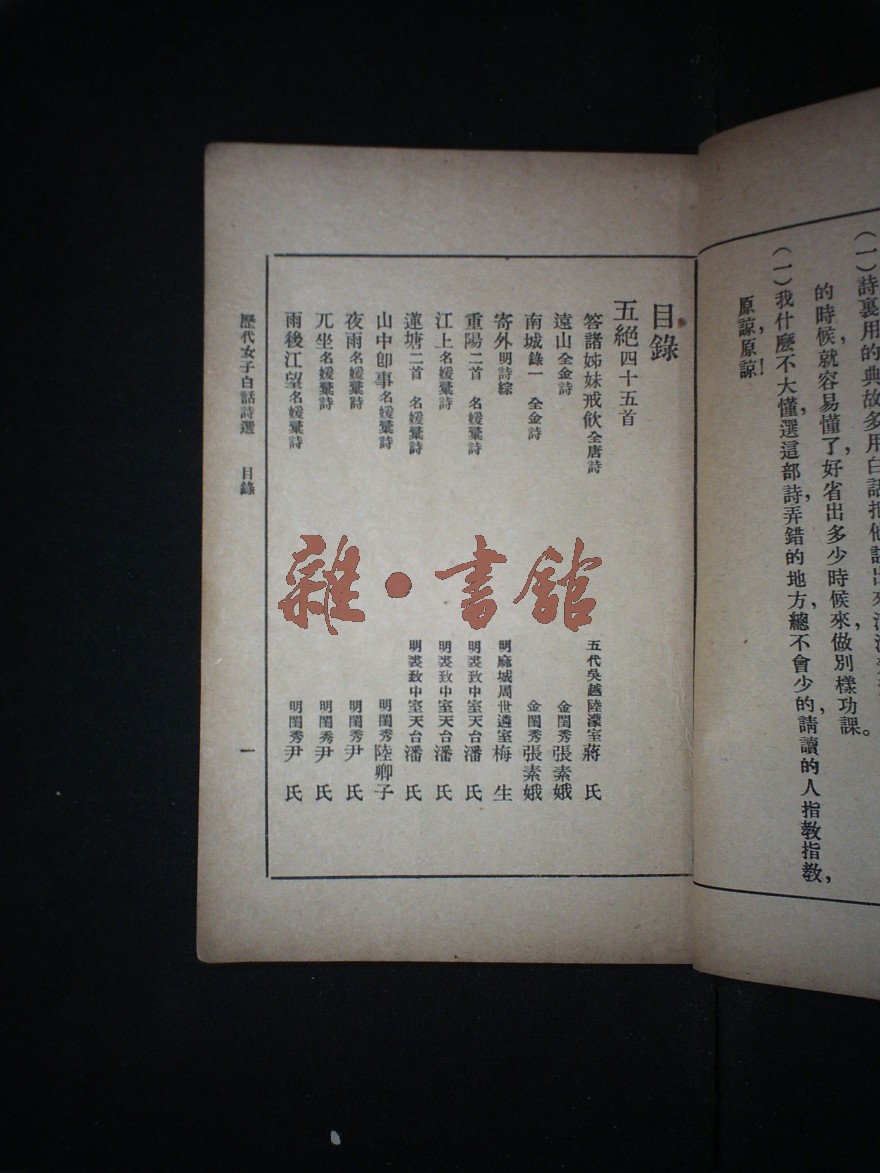 (一)詩裏用的典故多用白話把他
的時候,就容易懂了,好省出多少時候來,做別樣功課。
(一)我什麼不大懂,選這部詩,弄錯的地方,總不會少的,請讀的人指教指教,
原諒,原諒!
目錄
五絕四十五首
答諸姊妹戒飲全唐詩 五代吳越陸濛室蔣 氏
遠山全金詩 金閨秀張素娥
南城錄一 全金詩 金閨秀張素娥
寄外明詩綜 明麻城周世遴室梅 生
重陽二首 名媛彙詩 明裘致中室天台潘 氏
江上名媛彙詩 明裘致中室天台潘 氏
蓮塘二首 名媛彙詩 明裘致中室天台潘 氏
山中卽事名媛彙詩 明閨秀陸卿子
夜雨名媛彙詩 明閨秀尹 氏
兀坐名媛彙詩 明閨秀尹 氏
雨後江望名媛彙詩 明閨秀尹 氏
歷代女子白話詩選 目錄 一
雜·書館